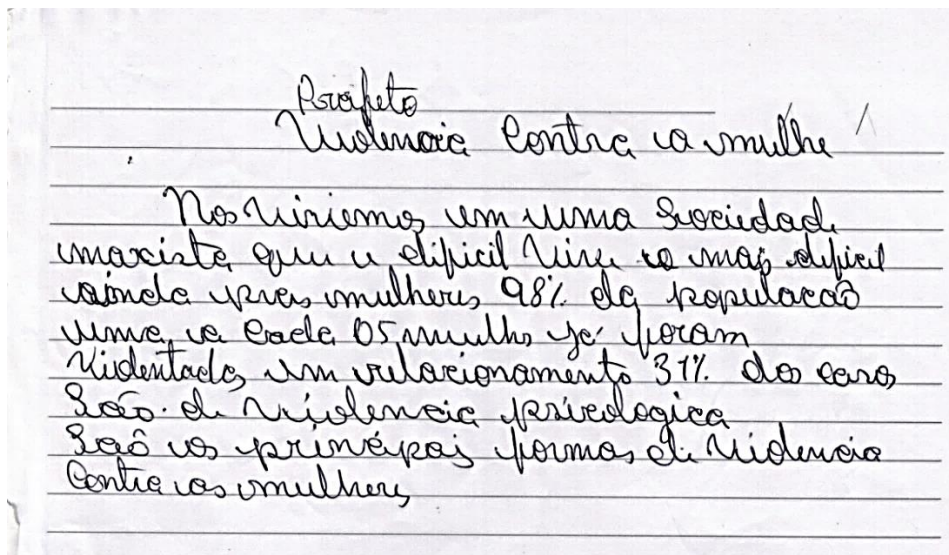 Projeto
Violencia Contra a mulhe
Nos viviemos em uma Sociedad
maxista que e dificil vive e mas dificil
ainda pras mulheres 98% da populacaõ
uma a cada 05 mulhe já foram
Violentadas em relacionamento 31% dos casos
Saõ de violencia psicologica
Saõ as principais formas de violencia
Contra as mulheres